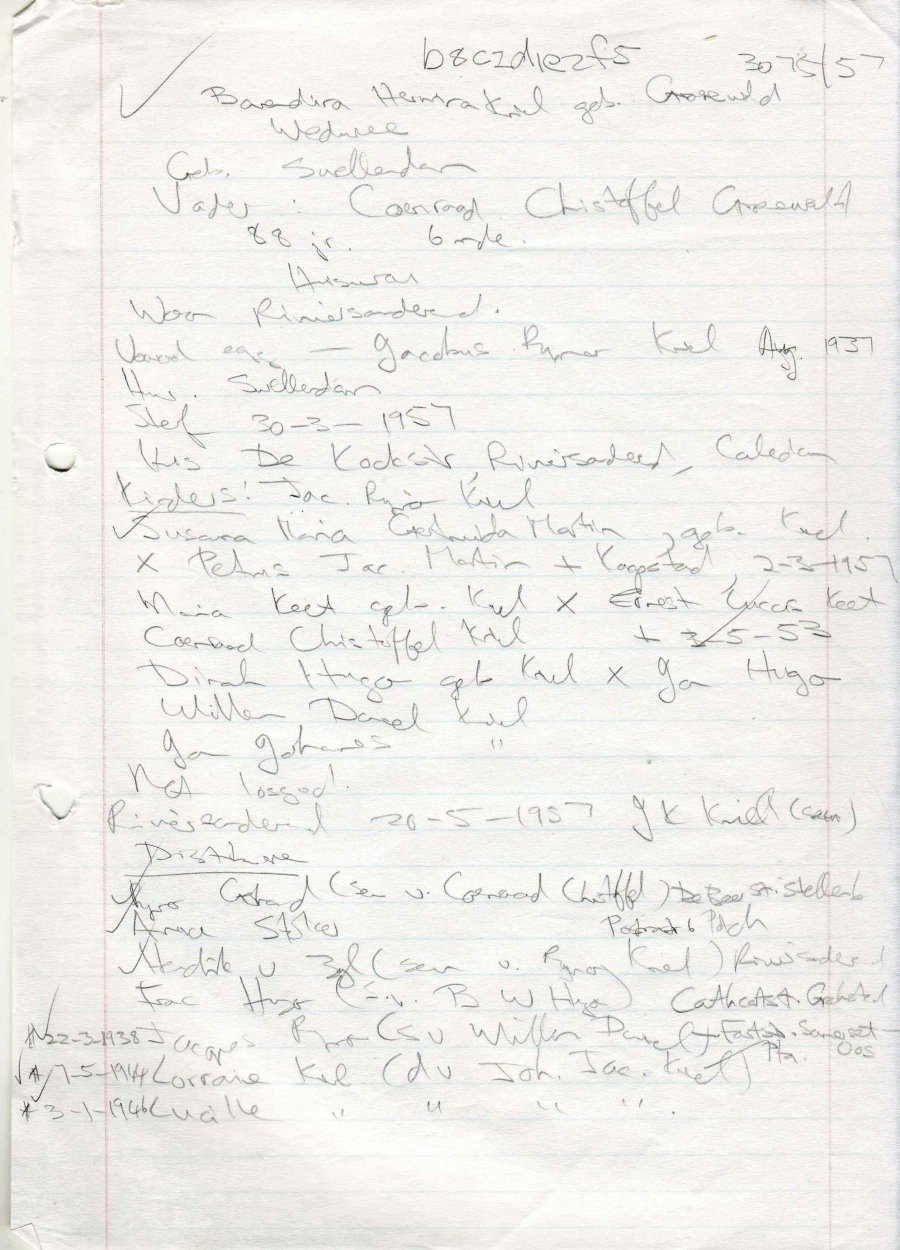 b8c2d1e2f5 3075/57
Barendina Hermina Kriel geb. Groenewald
Weduwee
Geb. Swellendam
Vader : Coenraad Christoffel Groenewald
88 jr. 6 mde.
Huisvrou
Woon Riviersonderend.
Vooroorl egg — Jacobus Rynier Kriel Aug. 1937
Huw. Swellendam
Sterf 30-3-1957
Huis De Kockstr, Riviersonderend, Caledon
Kinders: Jac. Rynier Kriel
Susanna Maria Gertruida Martin, geb. Kriel.
X Petrus Jac. Martin + Kaapstad, 2-3-1957
Maria Keet geb. Kriel X Ernest Keet
Coenraad Christoffel Kriel + 3-5-53
Dinah Hugo geb Kriel X Jan Hugo
Willem Daniel Kriel
Jan Johannes "
Nag losgod.
Riviersonderend 20-5-1957 J K Kriel (seun)
Distribusie
Gerhard (seun v. Coenraad Christoffel) De Beer str. Stellenb
Posbus 6
v Zyl (seun v. Rynier Kriel) Riviersonderend
Frac Hugo (s.v. B W Hugo) Cathcartst. Grahamst
*22-3-1938 Jacques Rynier (s v Willem Daniel) Somerset-Oos
Pta.
*7-5-1944 Lorraine Kriel (d v Joh. Jac. Kriel)
*3-1-1946 Lucille " " " ".